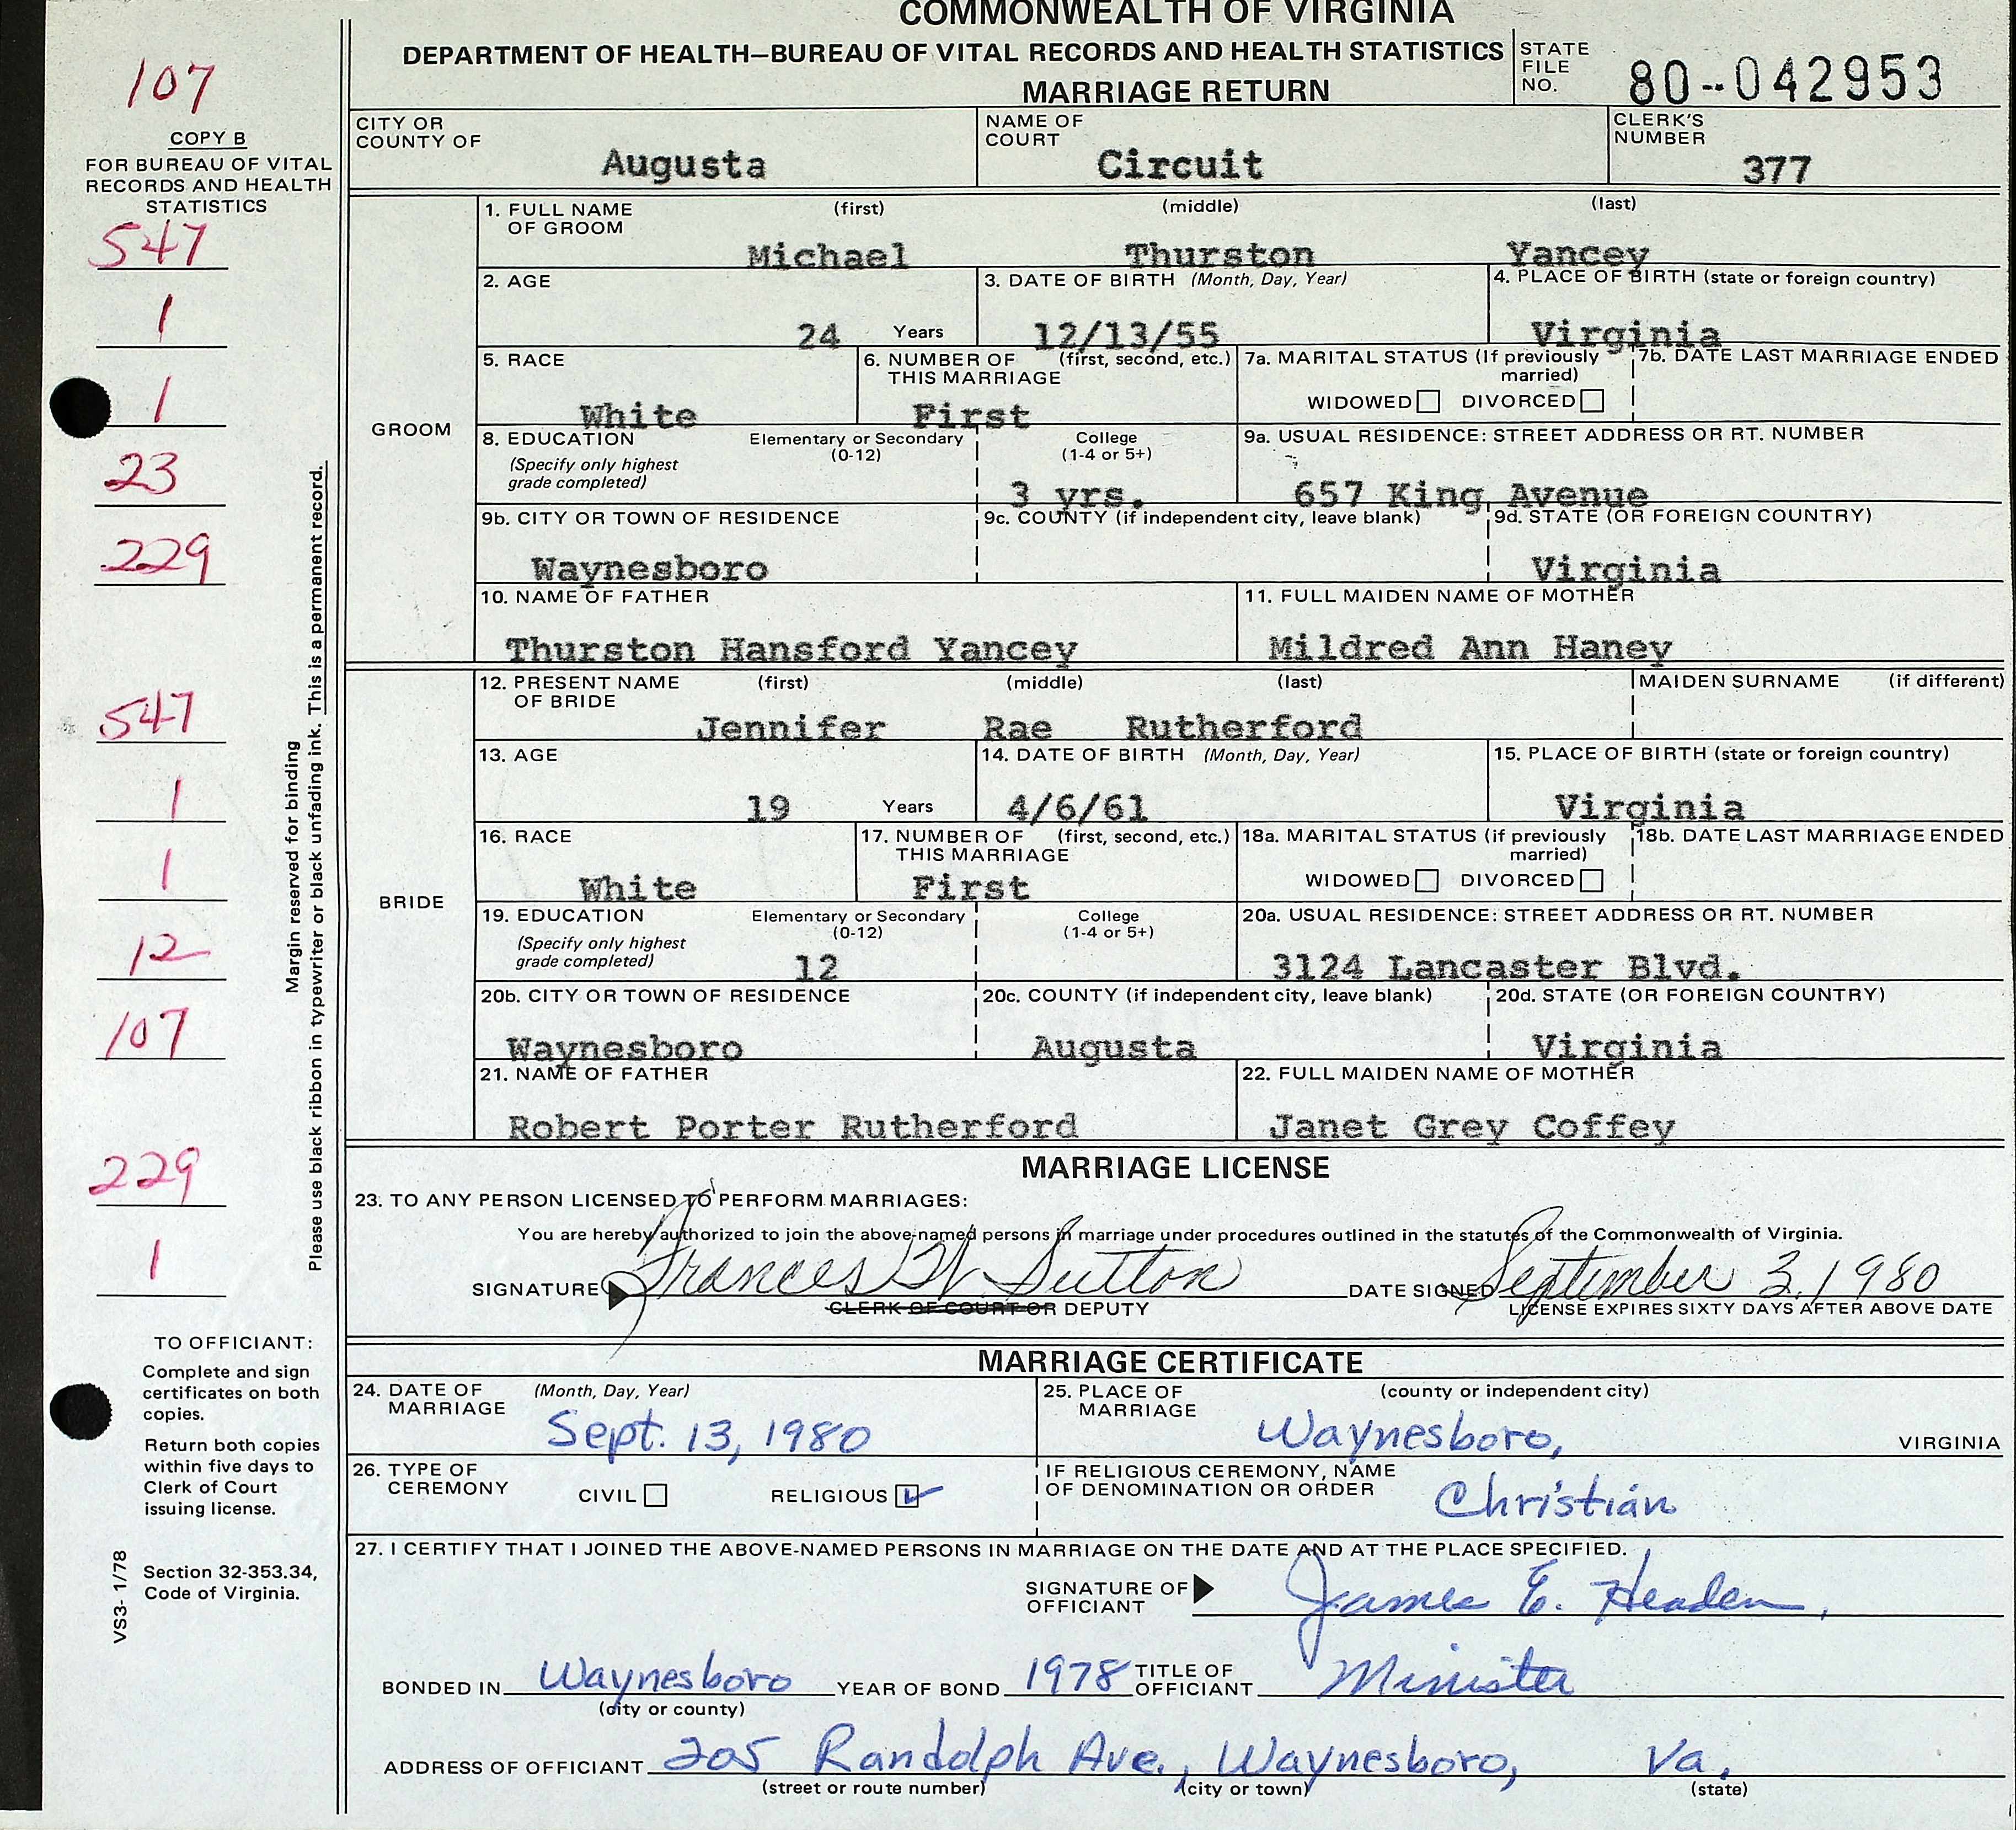 COMMONWEALTH OF VIRGINIA
DEPARTMENT OF HEALTH—BUREAU OF VITAL RECORDS AND HEALTH STATISTICS
MARRIAGE RETURN
STATE FILE NO. 80--042953
107
COPY B
FOR BUREAU OF VITAL
RECORDS AND HEALTH
STATISTICS
547
1
1
23
229
547
1
1
12
107
229
1
Margin reserved for binding
Please use black ribbon in typewriter or black unfading ink. This is a permanent record.
TO OFFICIANT:
Complete and sign
certificates on both
copies.
Return both copies
within five days to
Clerk of Court
issuing license.
Section 32-353.34,
Code of Virginia.
VS3- 1/78
CITY OR COUNTY OF Augusta
NAME OF COURT Circuit
CLERK'S NUMBER 377
GROOM
1. FULL NAME OF GROOM (first) (middle) (last)
Michael Thurston Yancey
2. AGE 24 Years
3. DATE OF BIRTH (Month, Day, Year) 12/13/55
4. PLACE OF BIRTH (state or foreign country) Virginia
5. RACE White
6. NUMBER OF THIS MARRIAGE (first, second, etc.) First
7a. MARITAL STATUS (If previously married) WIDOWED DIVORCED
7b. DATE LAST MARRIAGE ENDED
8. EDUCATION (Specify only highest grade completed) Elementary or Secondary (0-12) College (1-4 or 5+) 3 yrs.
9a. USUAL RESIDENCE: STREET ADDRESS OR RT. NUMBER 657 King Avenue
9b. CITY OR TOWN OF RESIDENCE Waynesboro
9c. COUNTY (if independent city, leave blank)
9d. STATE (OR FOREIGN COUNTRY) Virginia
10. NAME OF FATHER Thurston Hansford Yancey
11. FULL MAIDEN NAME OF MOTHER Mildred Ann Haney
BRIDE
12. PRESENT NAME OF BRIDE (first) (middle) (last) MAIDEN SURNAME (if different)
Jennifer Rae Rutherford
13. AGE 19 Years
14. DATE OF BIRTH (Month, Day, Year) 4/6/61
15. PLACE OF BIRTH (state or foreign country) Virginia
16. RACE White
17. NUMBER OF THIS MARRIAGE (first, second, etc.) First
18a. MARITAL STATUS (if previously married) WIDOWED DIVORCED
18b. DATE LAST MARRIAGE ENDED
19. EDUCATION (Specify only highest grade completed) Elementary or Secondary (0-12) 12 College (1-4 or 5+)
20a. USUAL RESIDENCE: STREET ADDRESS OR RT. NUMBER 3124 Lancaster Blvd.
20b. CITY OR TOWN OF RESIDENCE Waynesboro
20c. COUNTY (if independent city, leave blank) Augusta
20d. STATE (OR FOREIGN COUNTRY) Virginia
21. NAME OF FATHER Robert Porter Rutherford
22. FULL MAIDEN NAME OF MOTHER Janet Grey Coffey
MARRIAGE LICENSE
23. TO ANY PERSON LICENSED TO PERFORM MARRIAGES:
You are hereby authorized to join the above-named persons in marriage under procedures outlined in the statutes of the Commonwealth of Virginia.
SIGNATURE Frances W. Sutton DATE SIGNED September 3, 1980
CLERK OF COURT OR DEPUTY LICENSE EXPIRES SIXTY DAYS AFTER ABOVE DATE
MARRIAGE CERTIFICATE
24. DATE OF MARRIAGE (Month, Day, Year) Sept. 13, 1980
25. PLACE OF MARRIAGE (county or independent city) Waynesboro, VIRGINIA
26. TYPE OF CEREMONY CIVIL RELIGIOUS ✓
IF RELIGIOUS CEREMONY, NAME OF DENOMINATION OR ORDER Christian
27. I CERTIFY THAT I JOINED THE ABOVE-NAMED PERSONS IN MARRIAGE ON THE DATE AND AT THE PLACE SPECIFIED.
SIGNATURE OF OFFICIANT James E. Headen,
BONDED IN Waynesboro YEAR OF BOND 1978 TITLE OF OFFICIANT Minister
(city or county)
ADDRESS OF OFFICIANT 205 Randolph Ave., Waynesboro, Va.
(street or route number) (city or town) (state)